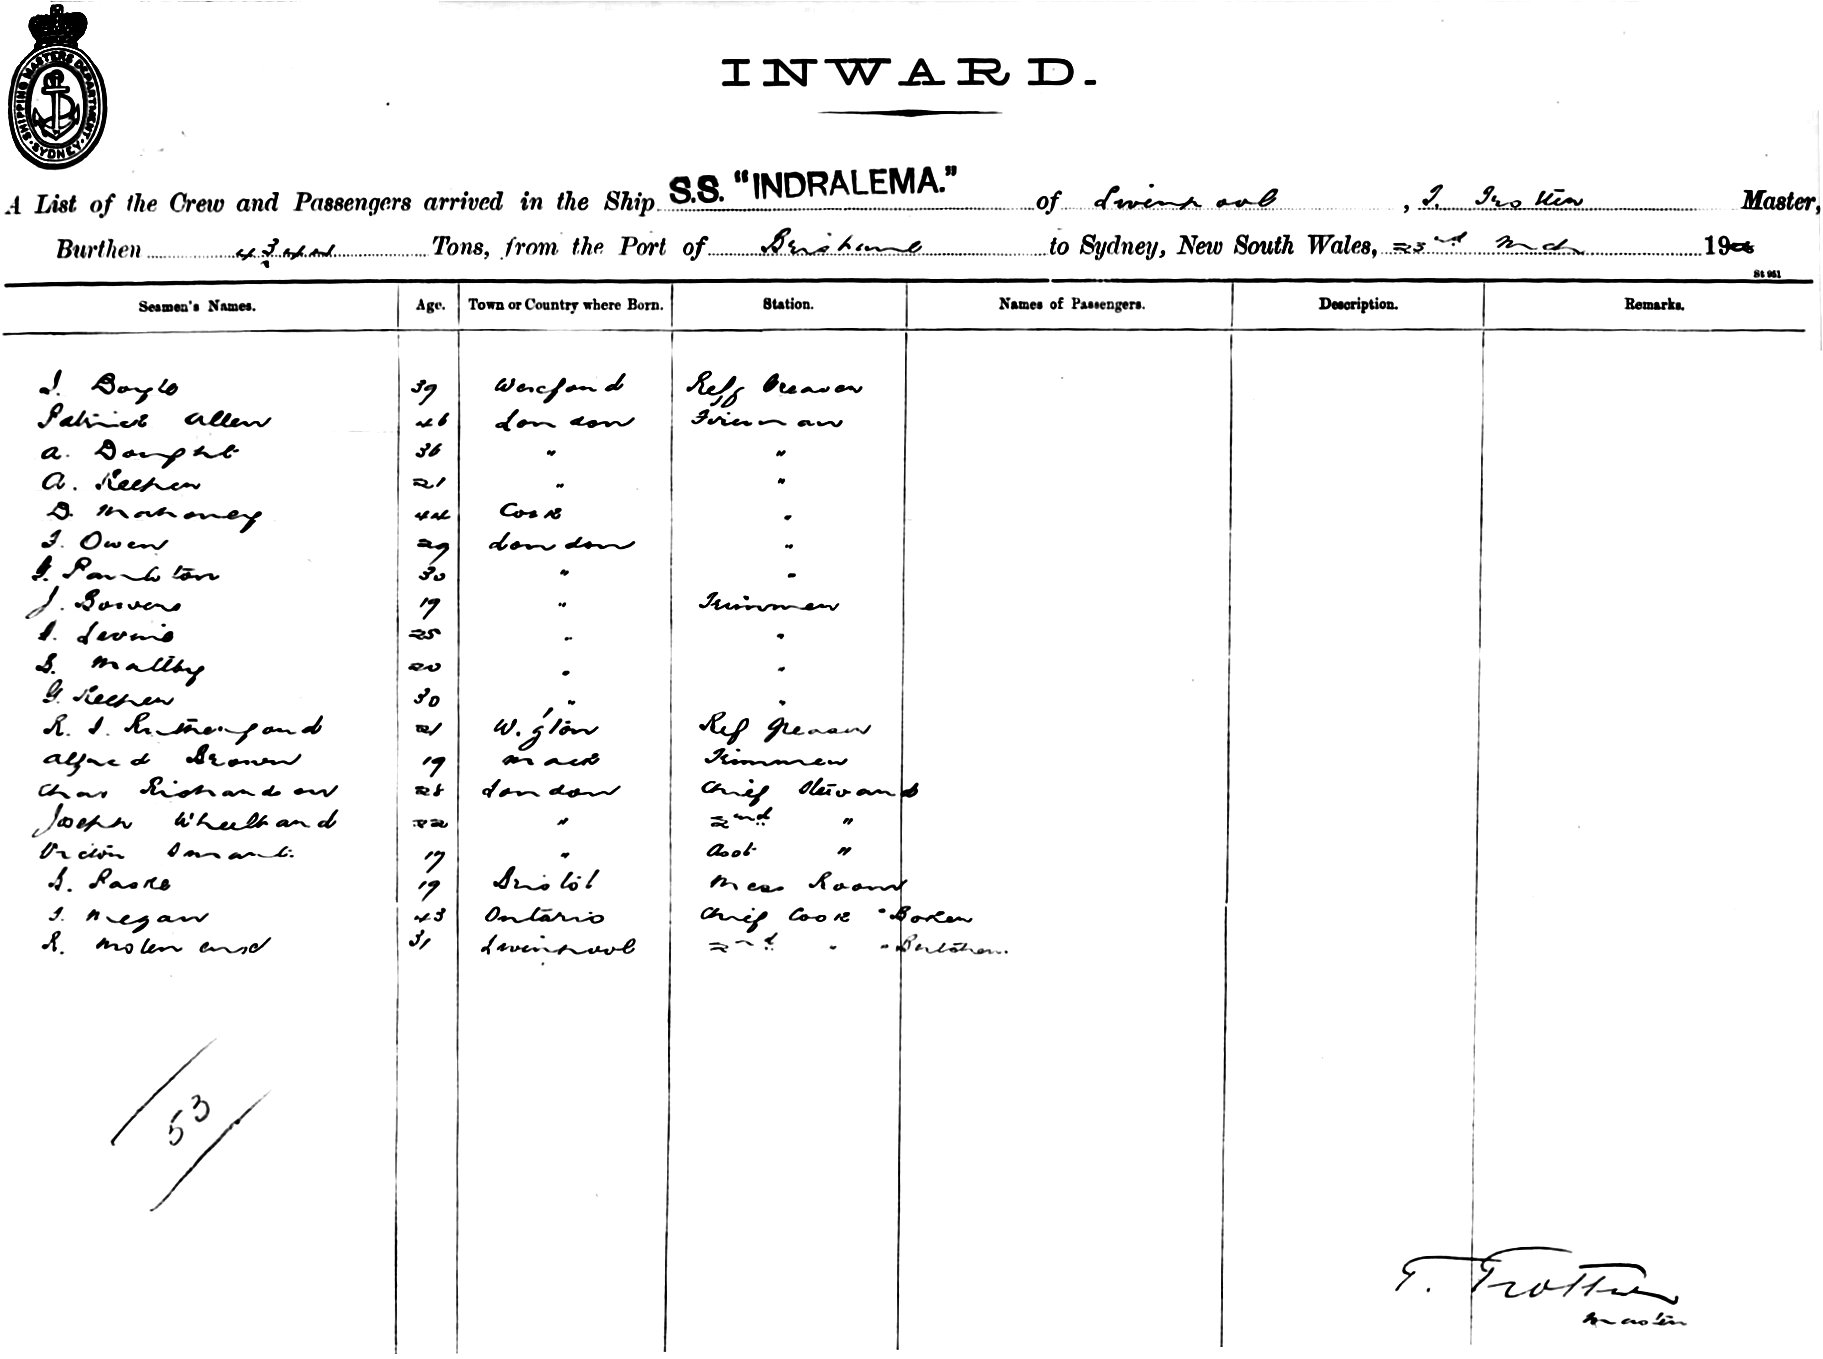 SHIPPING MASTERS DEPARTMENT. SYDNEY.
INWARD.
A List of the Crew and Passengers arrived in the Ship S.S. "INDRALEMA." of Liverpool, T. Trotter Master,
Burthen Tons, from the Port of Brisbane to Sydney, New South Wales, 23rd Mch 19
St 951
Seamen's Names. Age. Town or Country where Born. Station. Names of Passengers. Description. Remarks.
39 Wexford Refg Greaser
Patrick Allen 46 London Fireman
A. 36 " "
A. Keepen 21 " "
D. Mahoney 44 Cork "
T. Owen 29 London "
30 " "
J. Bowers 19 " Trimmer
Levine 25 " "
Maltby 20 " "
G. Keepen 30 " "
R. J. Rutherford 21 W.gton Ref Greaser
Alfred Brown 19 Trimmer
Chas Richardson 28 London Chief Steward
Joseph 22 " 2nd "
Victor 17 " Asst "
19 Bristol Mess Room
Megan 43 Ontario Chief Cook " Baker
R. 31 Liverpool 2nd " " Butcher.
53
T. Trotter
Master